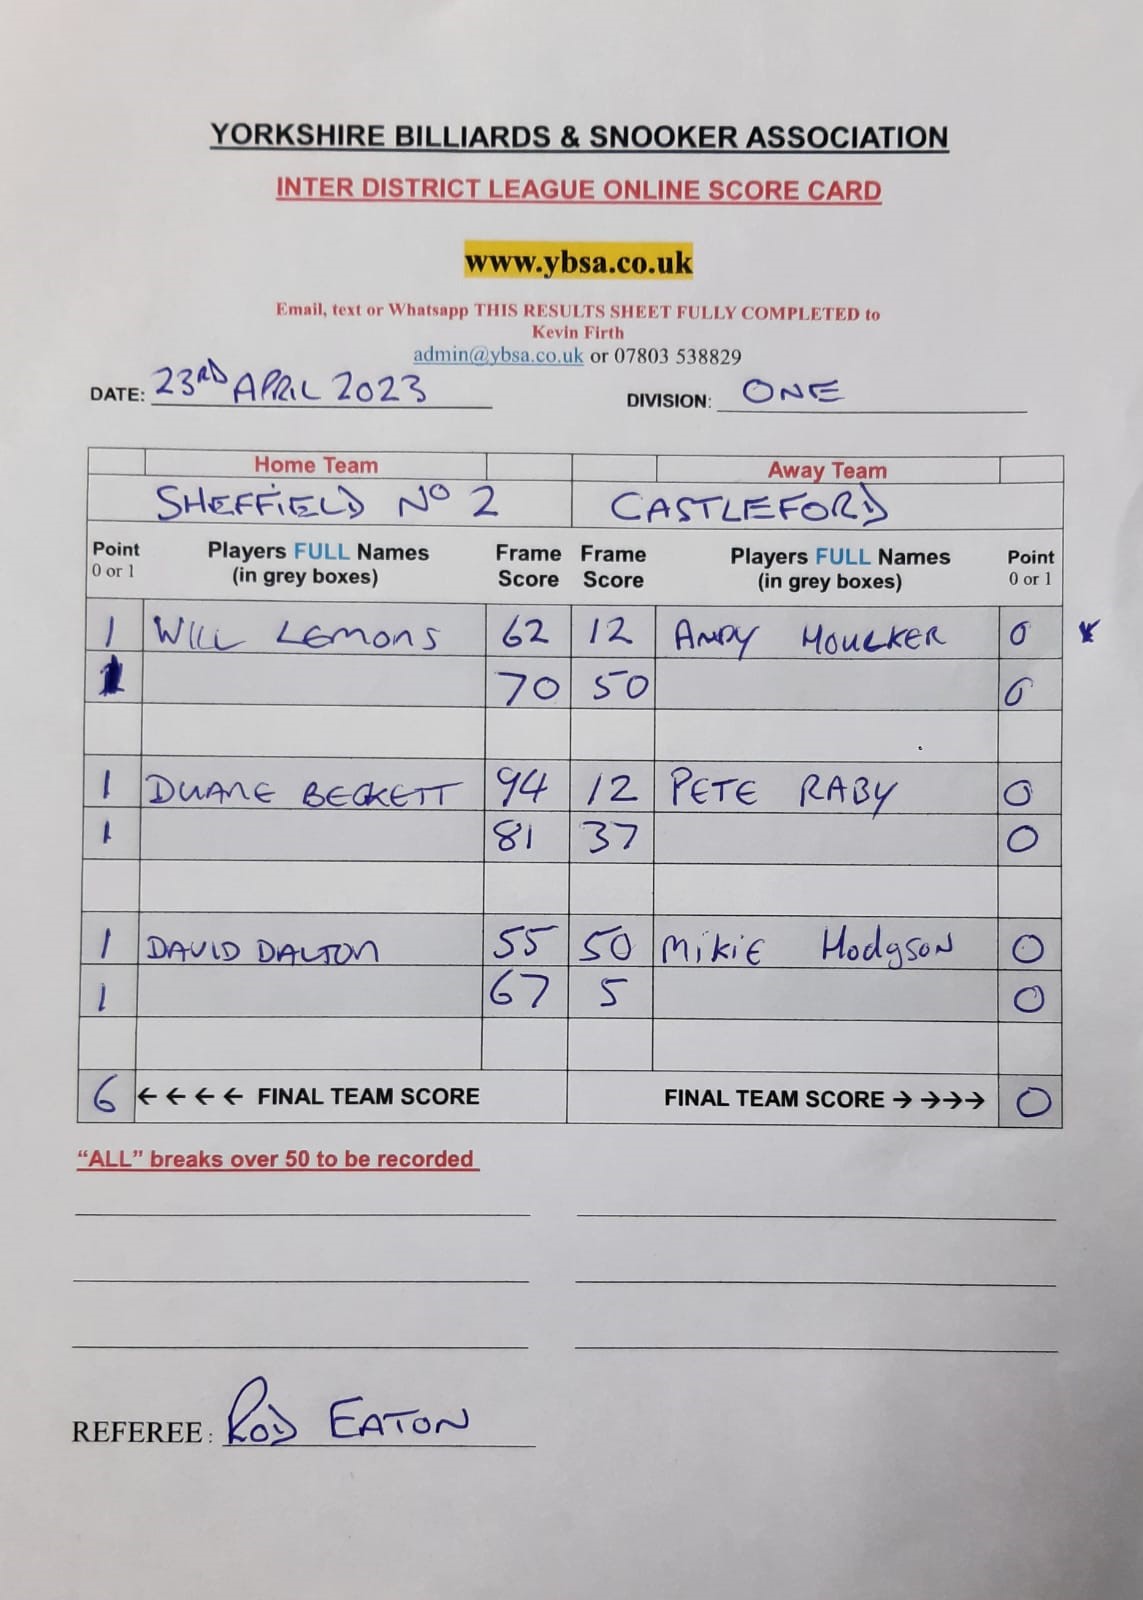 YORKSHIRE BILLIARDS & SNOOKER ASSOCIATION
INTER DISTRICT LEAGUE ONLINE SCORE CARD
www.ybsa.co.uk
Email, text or Whatsapp THIS RESULTS SHEET FULLY COMPLETED to
Kevin Firth
admin@ybsa.co.uk or 07803 538829
DATE: 23RD APRIL 2023 DIVISION: ONE
Home Team Away Team
SHEFFIELD No 2 CASTLEFORD
Point Players FULL Names Frame Frame Players FULL Names Point
0 or 1 (in grey boxes) Score Score (in grey boxes) 0 or 1
1 WILL LEMONS 62 12 ANDY 0
1 70 50 0
1 DUANE BECKETT 94 12 PETE RABY 0
1 81 37 0
1 DAVID DALTON 55 50 MIKIE Hodgson 0
1 67 5 0
6 ←←←← FINAL TEAM SCORE FINAL TEAM SCORE →→→→ 0
“ALL” breaks over 50 to be recorded
REFEREE: ROD EATON